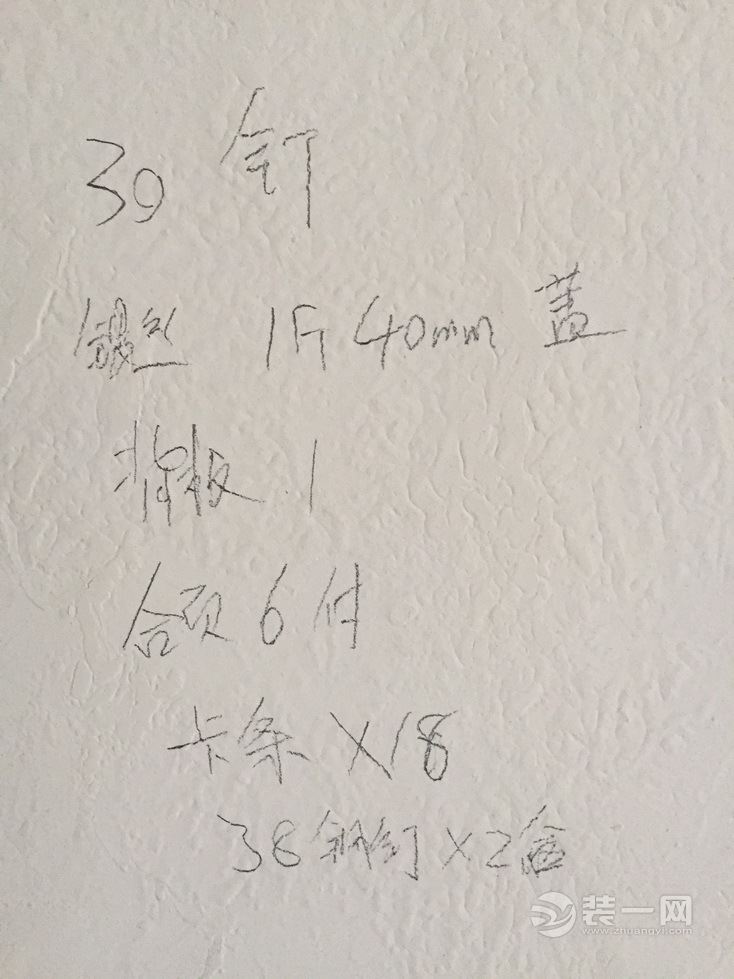 30 钉
锯丝 1斤 40mm 盖
背板 1
合页 6 付
卡条 X18
38钢钉 X2盒
装一网
www.zhuangyi.com